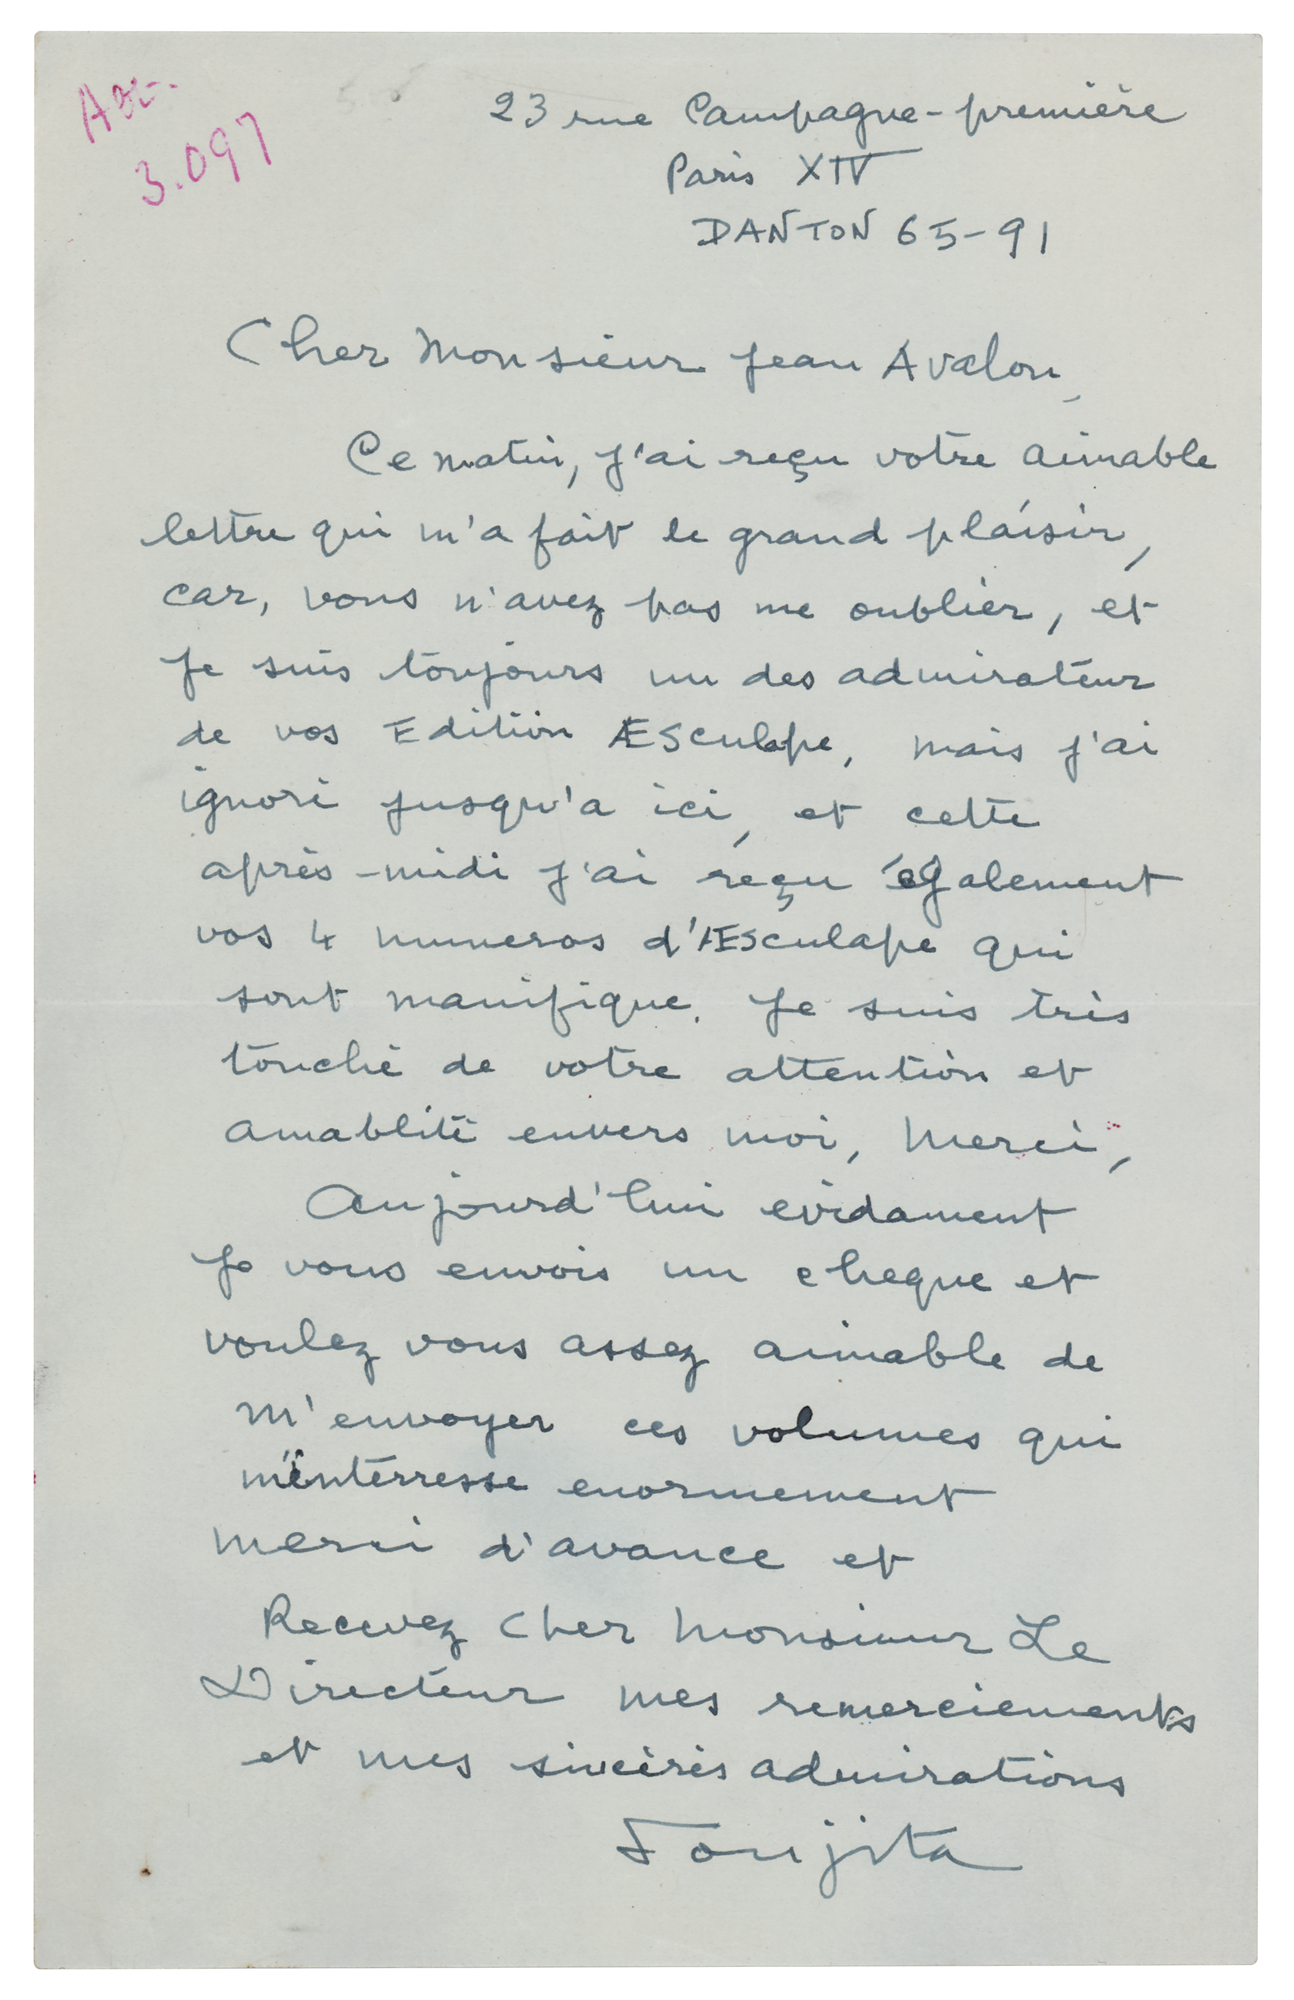 3.097
23 rue Campagne-première
Paris XIV
DANTON 65-91
Cher Monsieur Jean Avalon,
Ce matin, j'ai reçu votre aimable
lettre qui m'a fait le grand plaisir,
car, vous n'avez pas me oublier, et
Je suis toujours un des admirateur
de vos Edition ÆSculape, mais j'ai
ignoré jusqu'a ici, et cette
après-midi j'ai reçu également
vos 4 numeros d'ÆSculape qui
sont manifique. Je suis très
touché de votre attention et
amablité envers moi, Merci,
Aujourd'hui evidament
Je vous envois un cheque et
voulez vous assez aimable de
m'envoyer ces volumes qui
m'interresse enormement
Merci d'avance et
Recevez Cher Monsieur Le
Directeur mes remerciements
et mes sincérès admirations
Foujita